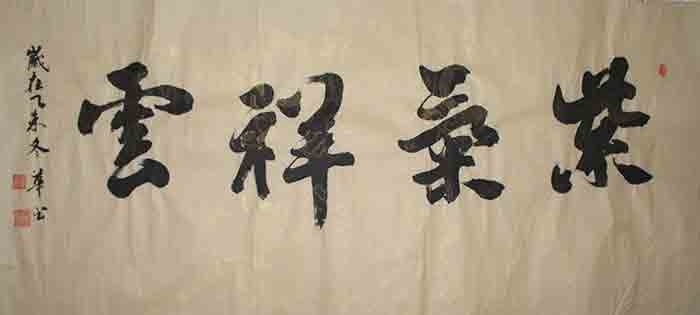 紫氣祥雲
歲在乙未冬華書